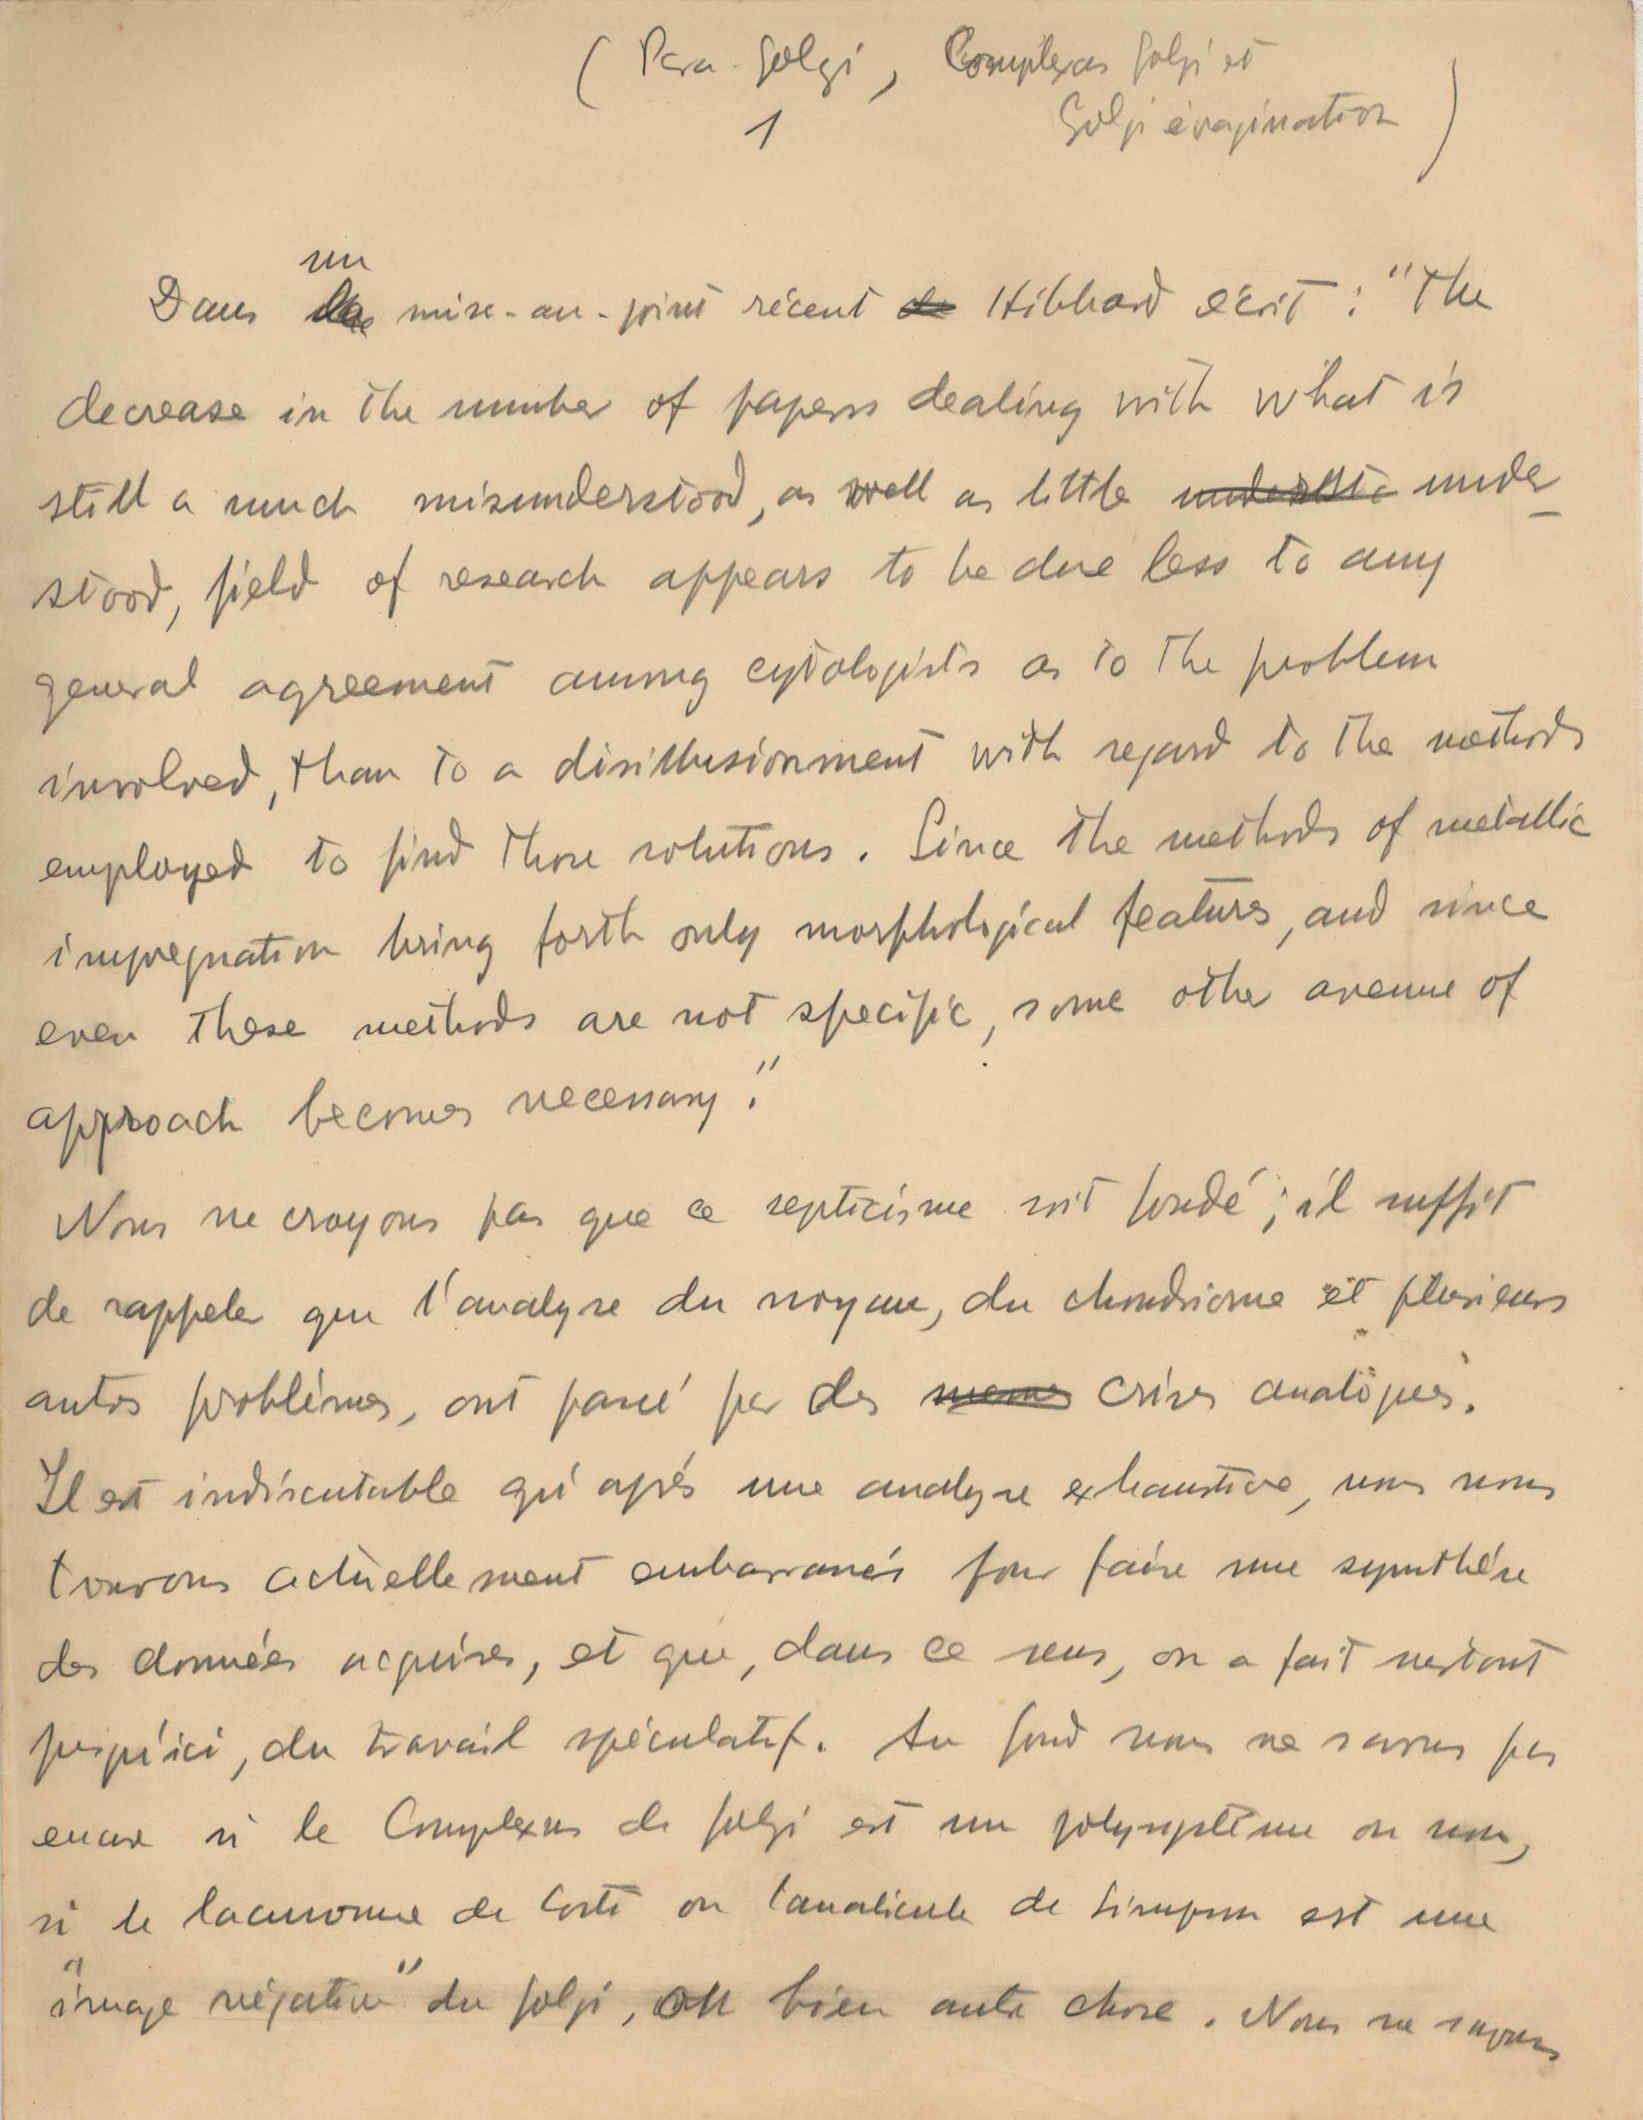 ( Para-Golgi, Complexus Golgi et
Golgi évagination )
1
un
Dans mise-au-point récent Hibbard écrit : "The
decrease in the number of papers dealing with what is
still a much misunderstood, as well as little under
stood, field of research appears to be due less to any
general agreement among cytologists as to the problem
involved, than to a disillusionment with regard to the methods
employed to find those solutions. Since the methods of metallic
impregnation bring forth only morphological features, and since
even these methods are not specific, some other avenue of
approach becomes necessary."
Nous ne croyons pas que ce septicisme soit fondé ; il suffit
de rappeler que l'analyse du noyau, du chondriome et plusieurs
autres problèmes, ont passé par des crises analogues.
Il est indiscutable qu'après une analyse exhaustive, nous nous
trouvons actuellement embarrassés pour faire une synthèse
des données acquises, et que, dans ce sens, on a fait surtout
jusqu'ici, du travail spéculatif. Au fond nous ne savons pas
encore si le Complexus de Golgi est un polysystème ou non,
si le lacunome de Corti ou canalicule de Simpson est une
"image négative" du Golgi, ou bien autre chose. Nous ne savons